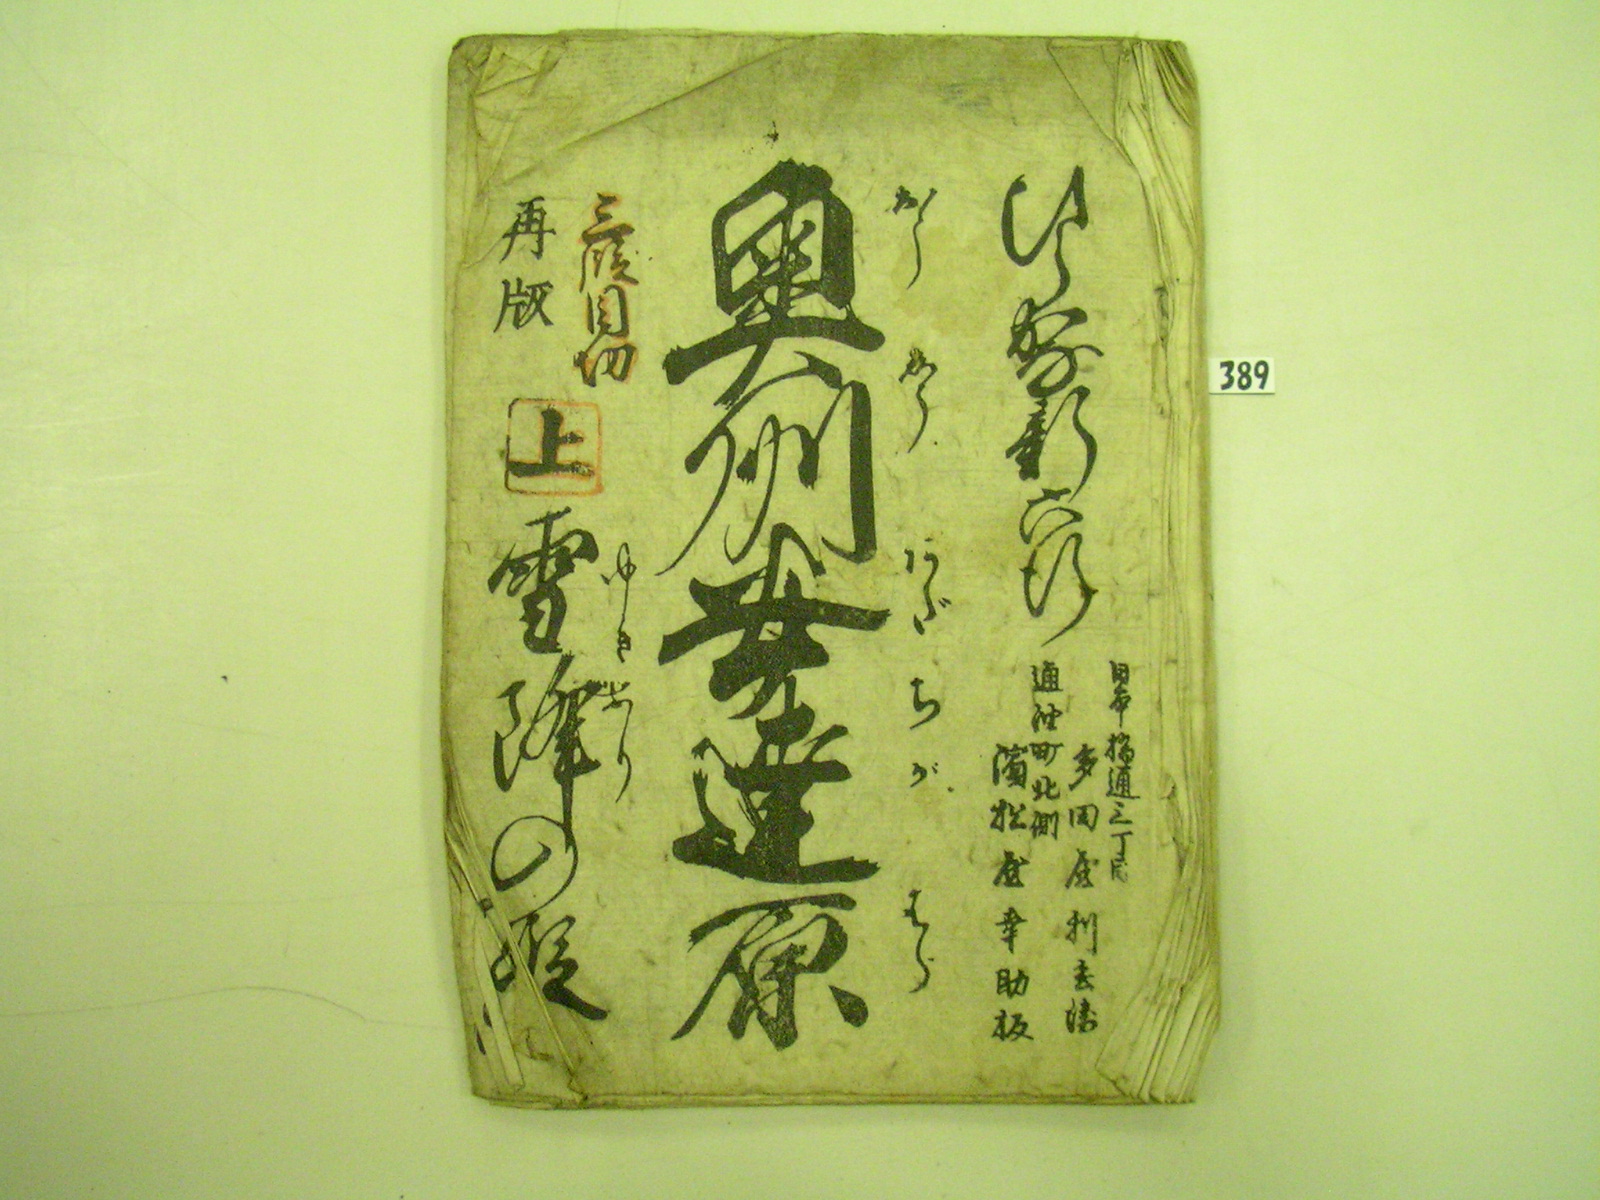 ひらかな新六行
日本橋通三丁目
多田屋利兵衛
通油町北側
濱松屋幸助板
おうしうあだちがはら
奥州安達原
三段目切
再版
上
ゆきふり
雪降の段
389